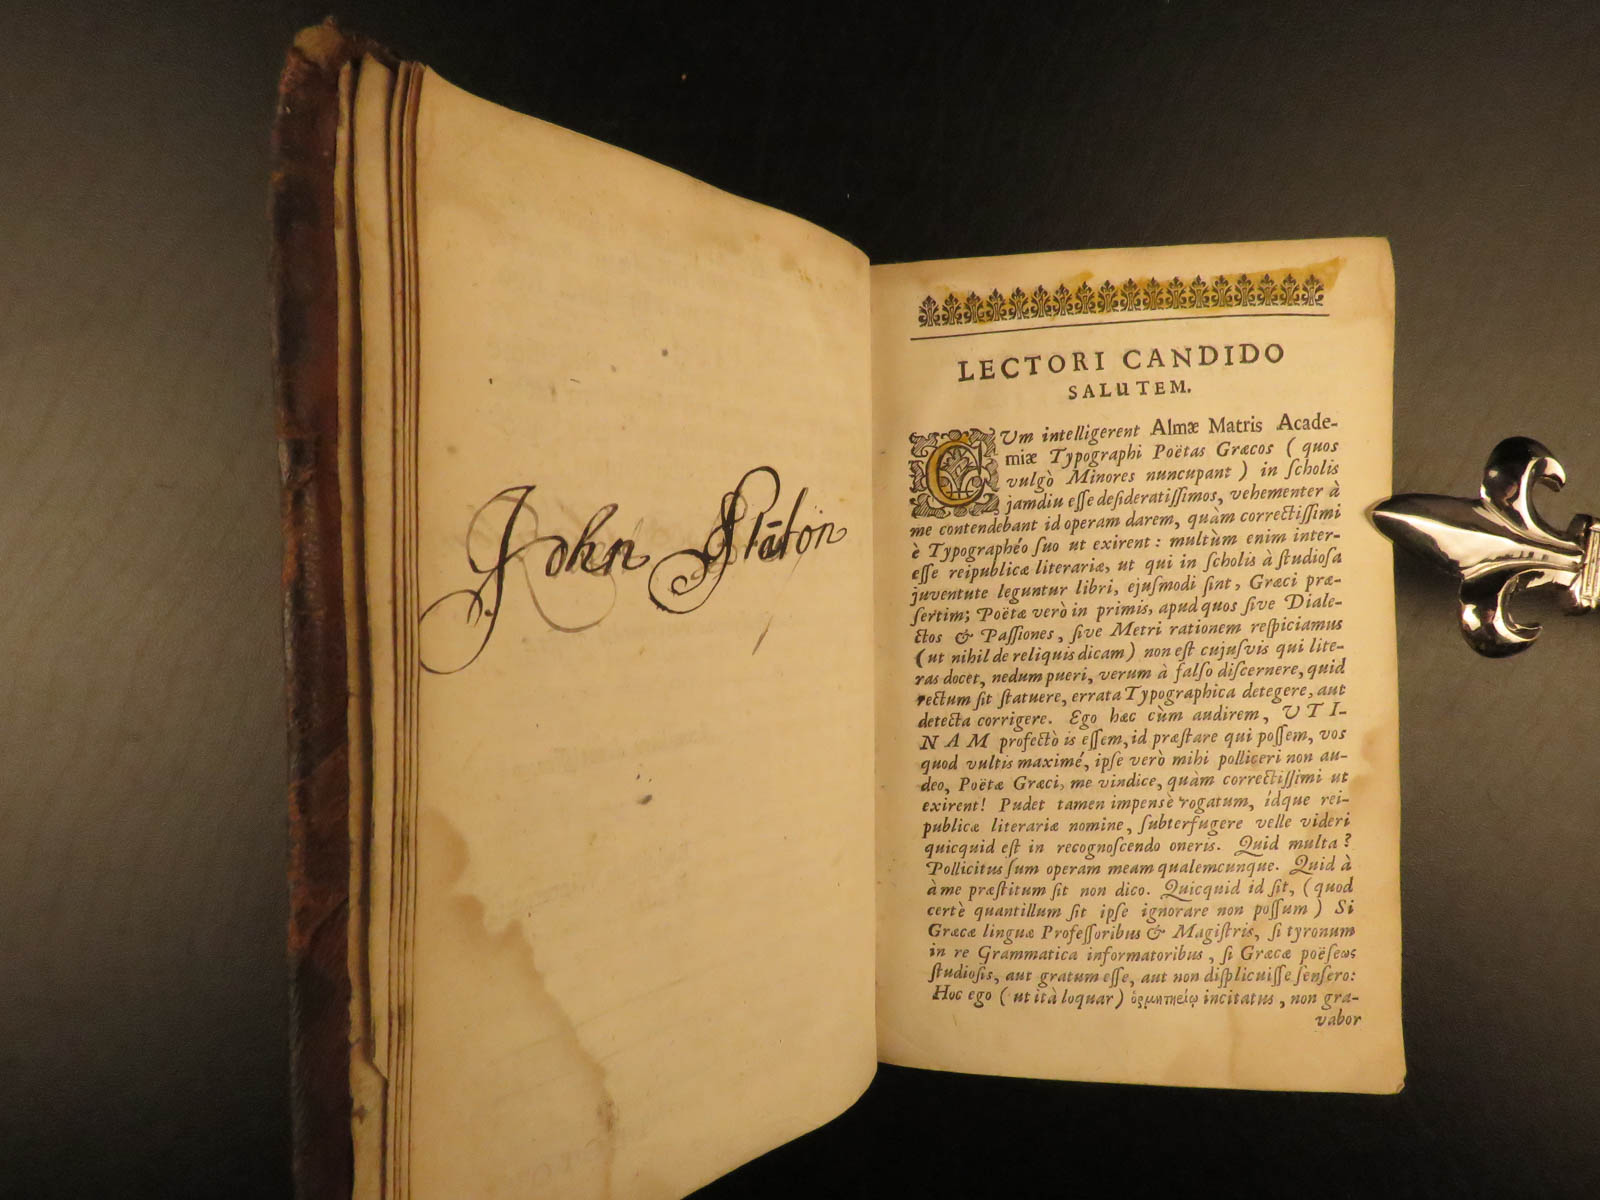 John Stēton
LECTORI CANDIDO
SALUTEM.
CUm intelligerent Almæ Matris Acade-
miæ Typographi Poëtas Græcos ( quos
vulgò Minores nuncupant ) in ſcholis
jamdiu eſſe deſideratiſſimos, vehementer à
me contendebant id operam darem, quàm correctiſſimi
è Typographéo ſuo ut exirent : multùm enim inter-
eſſe reipublicæ literariæ, ut qui in ſcholis à ſtudioſa
juventute leguntur libri, ejuſmodi ſint, Græci præ-
ſertim; Poëtæ verò in primis, apud quos ſive Diale-
ctos & Paſſiones, ſive Metri rationem reſpiciamus
(ut nihil de reliquis dicam) non eſt cujuſvis qui lite-
ras docet, nedum pueri, verum à falſo diſcernere, quid
rectum ſit ſtatuere, errata Typographica detegere, aut
detecta corrigere. Ego hæc cùm audirem, UTI-
NAM profectò is eſſem, id præſtare qui poſſem, vos
quod vultis maximé, ipſe verò mihi polliceri non au-
deo, Poëtæ Græci, me vindice, quàm correctiſſimi ut
exirent! Pudet tamen impensè rogatum, ídque rei-
publicæ literariæ nomine, ſubterfugere velle videri
quicquid eſt in recognoſcendo oneris. Quid multa ?
Pollicitus ſum operam meam qualemcunque. Quid à
à me præſtitum ſit non dico. Quicquid id ſit, ( quod
certè quantillum ſit ipſe ignorare non poſſum ) Si
Græcæ linguæ Profeſſoribus & Magiſtris, ſi tyronum
in re Grammatica informatoribus, ſi Græcæ poëſεως
ſtudioſis, aut gratum eſſe, aut non diſplicuiſſe ſenſero:
Hoc ego ( ut ità loquar ) ὁρμητηείῳ incitatus, non gra-
vabor